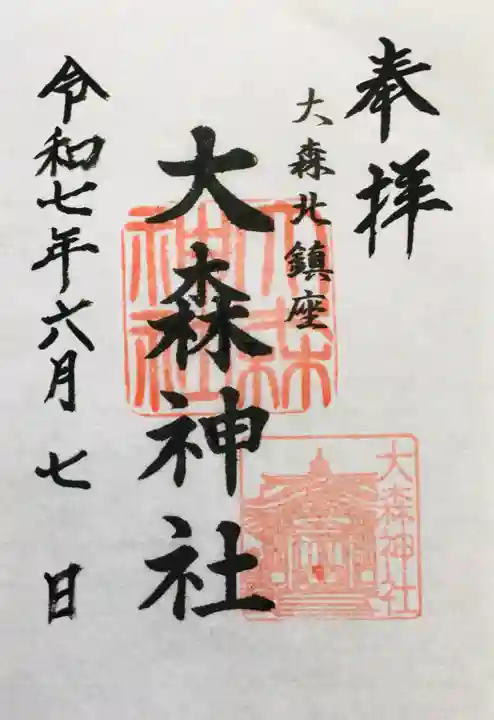 奉拝
大森北鎮座
大森神社
大森神社
大森神社
令和七年六月七日